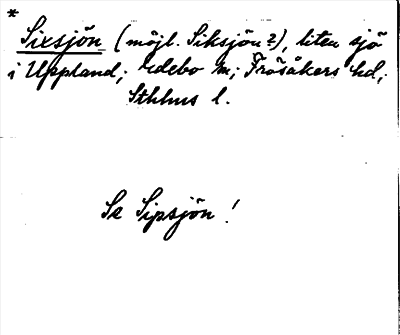 *
Sixsjön (möjl. Siksjön?), liten sjö
i Uppland; Edebo sn; Frösåkers hd;
Sthlms l.
Se Sipsjön!